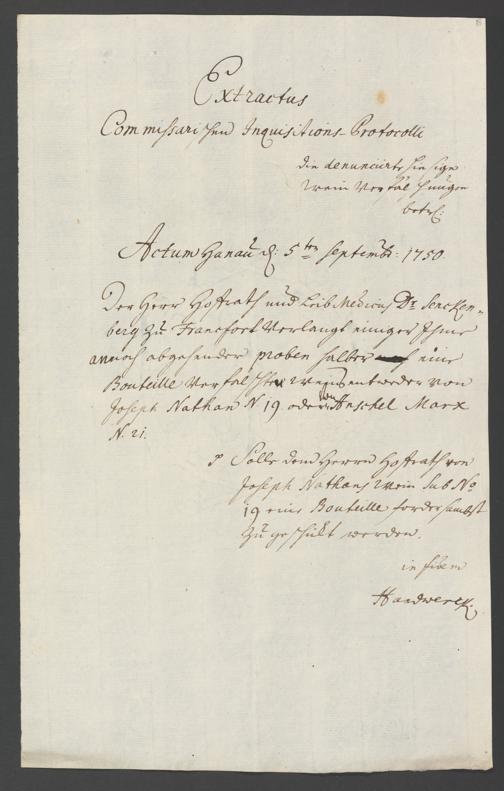 Extractus
Commissarischen Inquisitions-Protocolli
die denuncirte hiesige
Wein Verfälschungen
betr:
Actum Hanau d: 5ten Septembr: 1750.
Der Herr Hofrath und Leib Medicus Dr. Sencken-
berg zu Francfort Verlangt einiger Ihme
annoch abgehender proben halber eine
Bouteille Verfälschten weins entweder von
Joseph Nathan N 19 oder von Anschel Marx
N. 21.
Solle dem Herrn Hofrath von
Joseph Nathans Wein sub No
19 eine Bouteille fordersambst
zugeschickt werden.
in fidem
Handwerck.